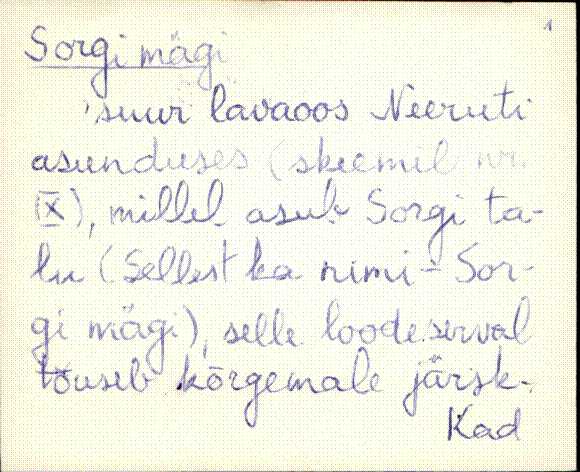 1
Sorgi mägi
suur lavaoos Neeruti
asunduses (skeemil nr.
IX), millel asub Sorgi ta-
lu (Sellest ka nimi - Sor-
gi mägi), selle loodeserval
tõuseb kõrgemale järsk-
Kad